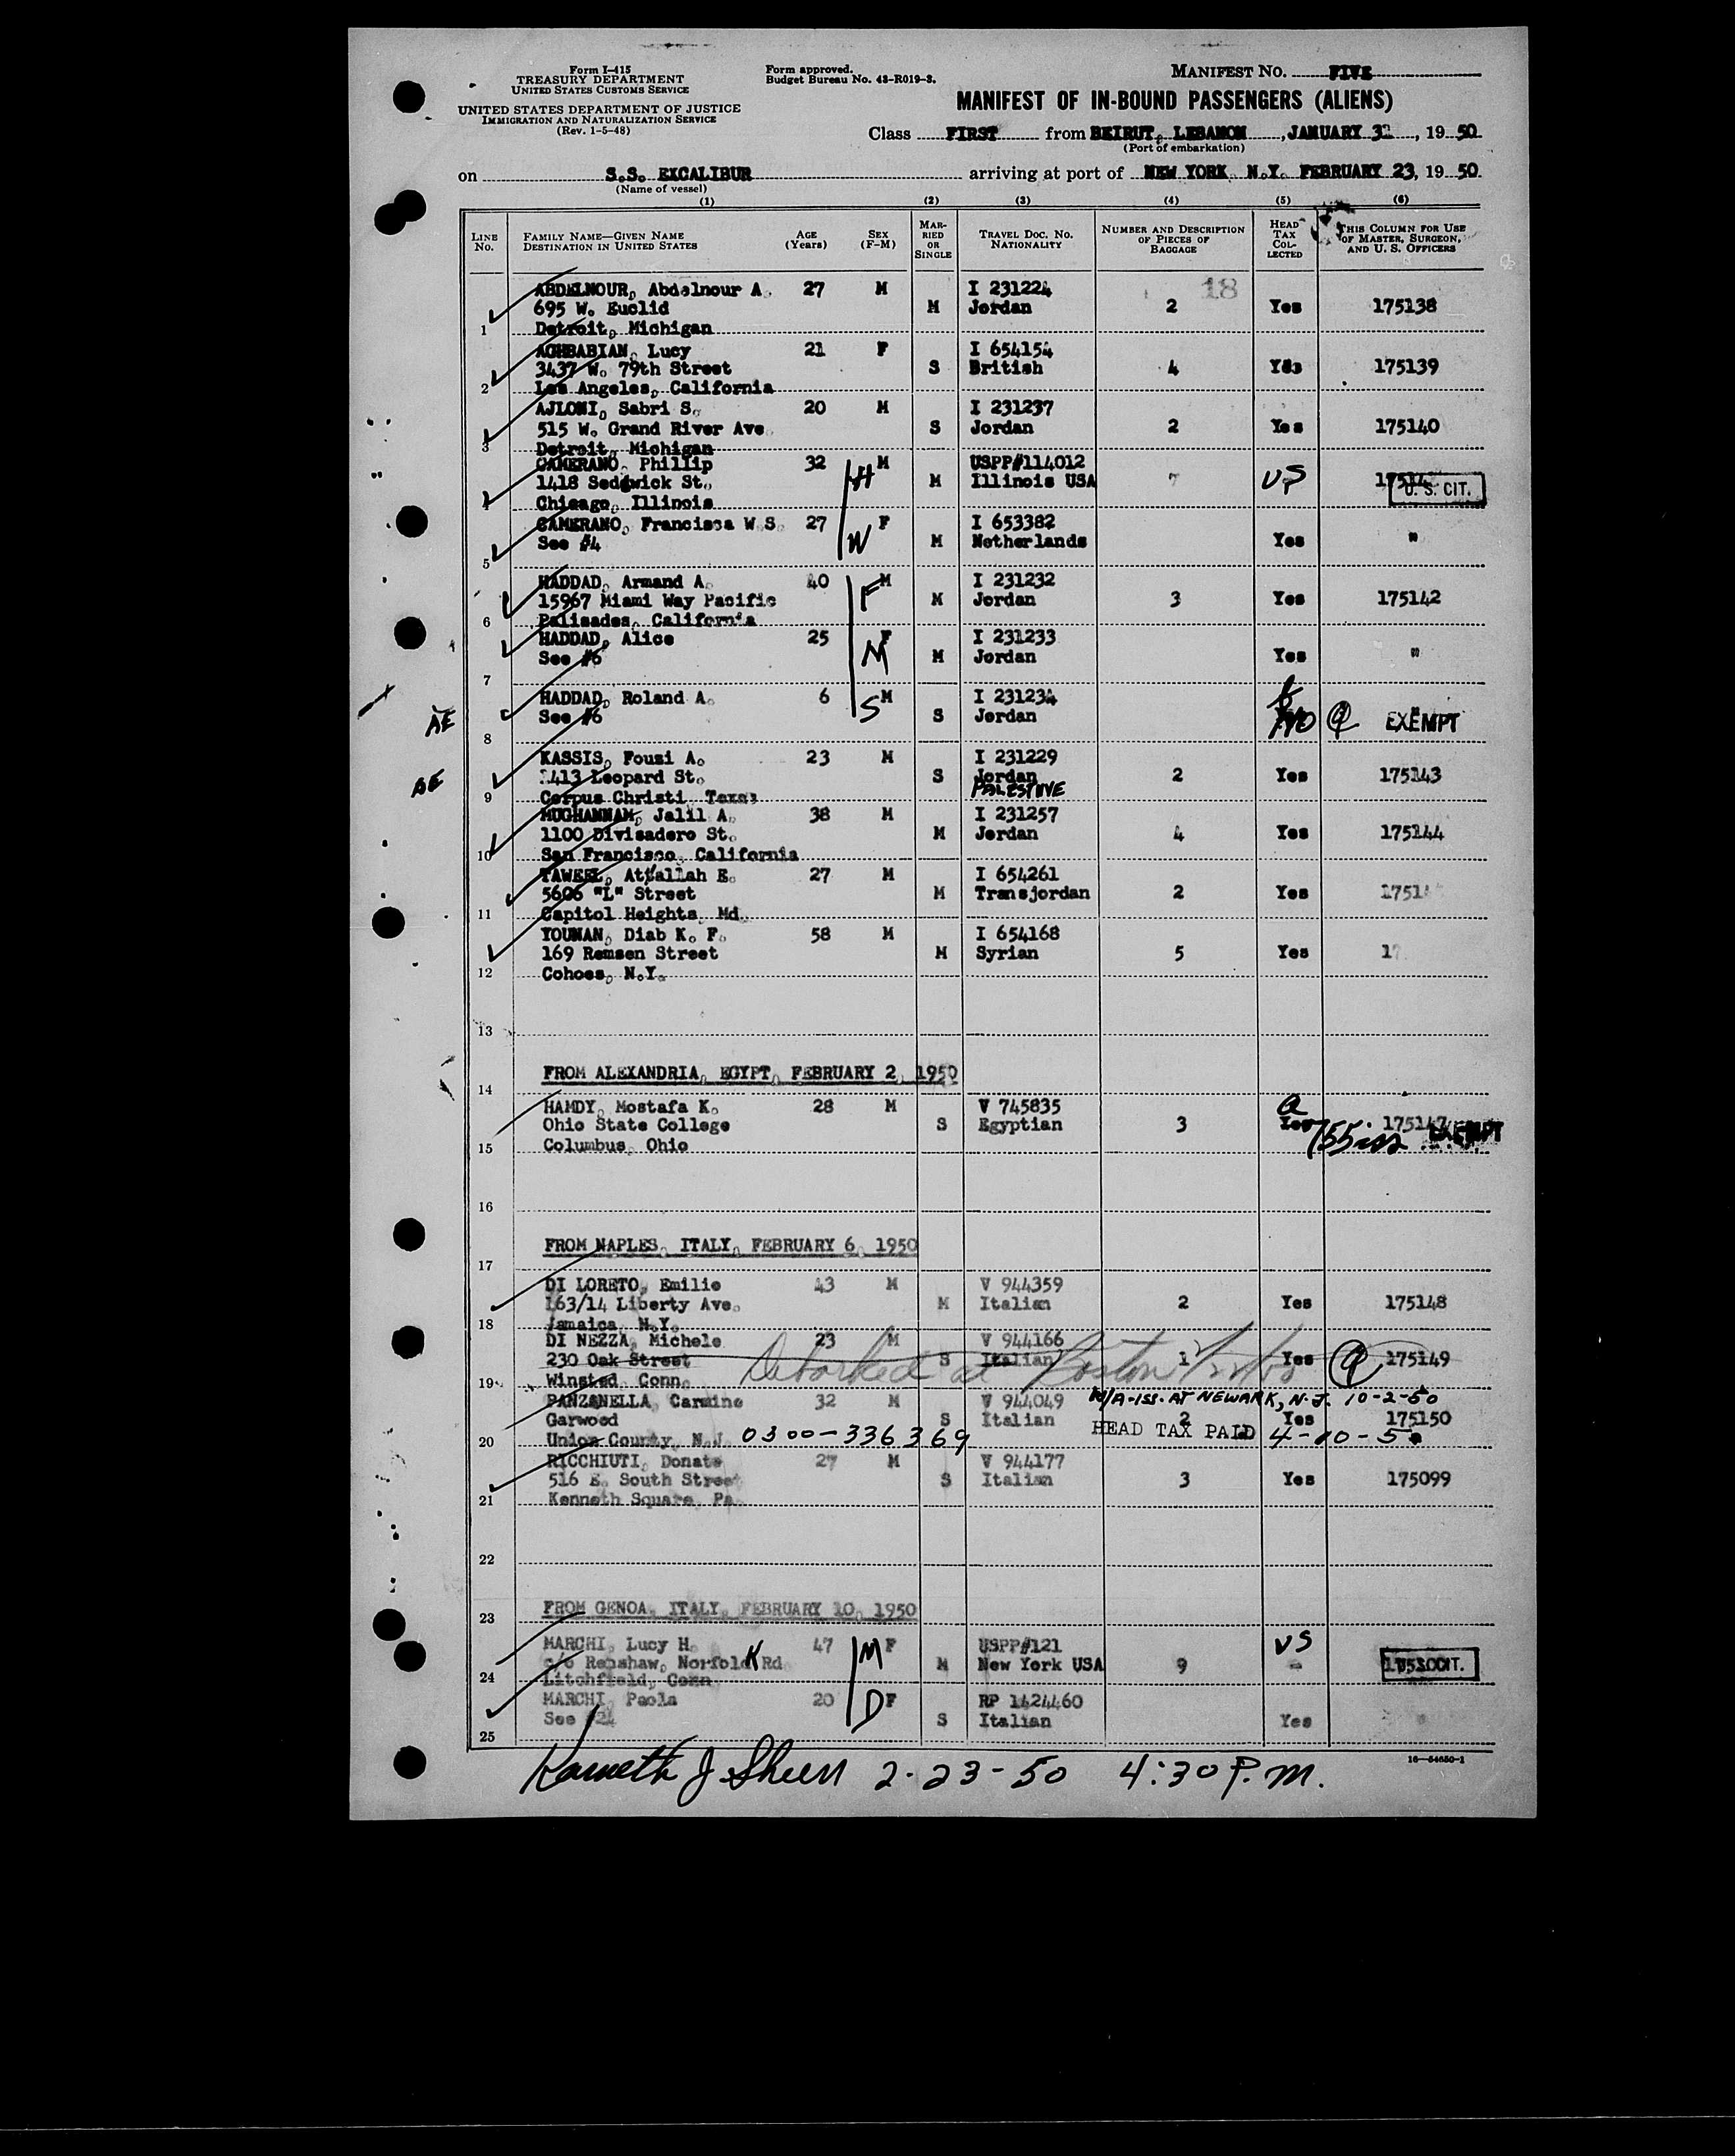 Form I-415
TREASURY DEPARTMENT
UNITED STATES CUSTOMS SERVICE
UNITED STATES DEPARTMENT OF JUSTICE
IMMIGRATION AND NATURALIZATION SERVICE
(Rev. 1-5-48)
Form approved.
Budget Bureau No. 43-R019-3.
MANIFEST NO. FIVE
MANIFEST OF IN-BOUND PASSENGERS (ALIENS)
Class FIRST from BEIRUT, LEBANON, JANUARY 31, 1950
(Port of embarkation)
on S.S. EXCALIBUR arriving at port of NEW YORK N.Y. FEBRUARY 23, 1950
(Name of vessel)
(1) (2) (3) (4) (5) (6)
LINE NO. FAMILY NAME—GIVEN NAME DESTINATION IN UNITED STATES AGE (YEARS) SEX (F-M) MARRIED OR SINGLE TRAVEL DOC. NO. NATIONALITY NUMBER AND DESCRIPTION OF PIECES OF BAGGAGE HEAD TAX COLLECTED THIS COLUMN FOR USE OF MASTER, SURGEON, AND U. S. OFFICERS
18
ABDELNOUR, Abdelnour A. 27 M I 231224
695 W. Euclid M Jordan 2 Yes 175138
1 Detroit, Michigan
AGHBABIAN, Lucy 21 F I 654154
3437 W. 79th Street S British 4 Yes 175139
2 Los Angeles, California
AJLONI, Sabri S. 20 M I 231237
515 W. Grand River Ave S Jordan 2 Yes 175140
3 Detroit, Michigan
CAMERANO, Phillip 32 H M USPP#114012
1418 Sedgwick St. M Illinois USA 7 US U. S. CIT.
4 Chicago, Illinois
CAMERANO, Francisca W S. 27 W F I 653382
See #4 M Netherlands Yes "
5
HADDAD, Armand A. 40 F M I 231232
15967 Miami Way Pacific M Jordan 3 Yes 175142
6 Palisades, California
HADDAD, Alice 25 M F I 231233
See #6 M Jordan Yes "
7
HADDAD, Roland A. 6 S M I 231234
AE See #6 S Jordan EXEMPT
8
KASSIS, Fouzi A. 23 M I 231229
AE 1413 Leopard St. S Jordan 2 Yes 175143
PALESTINE
9 Corpus Christi, Texas
MUGHANNAM, Jalil A. 38 M I 231257
1100 Divisadero St. M Jordan 4 Yes 175144
10 San Francisco, California
TAWEEL, Attallah E. 27 M I 654261
5606 "L" Street M Transjordan 2 Yes 1751
11 Capitol Heights, Md.
YOUNAN, Diab K. F. 58 M I 654168
169 Remsen Street M Syrian 5 Yes 17
12 Cohoes, N.Y.
13
FROM ALEXANDRIA, EGYPT, FEBRUARY 2, 1950
14
HAMDY, Mostafa K. 28 M V 745835
Ohio State College S Egyptian 3 Yes 175147 EXEMPT
15 Columbus, Ohio
16
FROM NAPLES, ITALY, FEBRUARY 6, 1950
17
DI LORETO, Emilio 43 M V 944359
163/14 Liberty Ave. M Italian 2 Yes 175148
18 Jamaica, N.Y.
DI NEZZA, Michele 23 M V 944166
230 Oak Street S Italian 1 Yes 175149
Debarked at Boston
19 Winsted, Conn.
PANZANELLA, Carmine 32 M V 944049 W/A-ISS. AT NEWARK, N.J. 10-2-50
Garwood S Italian 2 Yes 175150
20 Union County, N.J. 0300-336369 HEAD TAX PAID 4-10-50
RICCHIUTI, Donato 27 M V 944177
516 E. South Street S Italian 3 Yes 175099
21 Kenneth Square, Pa.
22
FROM GENOA, ITALY, FEBRUARY 10, 1950
23
MARCHI, Lucy H. 47 M F USPP#121 US
c/o Renshaw, Norfolk Rd M New York USA 9 -
24 Litchfield, Conn
MARCHI, Paola 20 D F RP 1424460
See #24 S Italian Yes "
25
16—54650-1
Kenneth J Sheen 2-23-50 4:30 P.M.